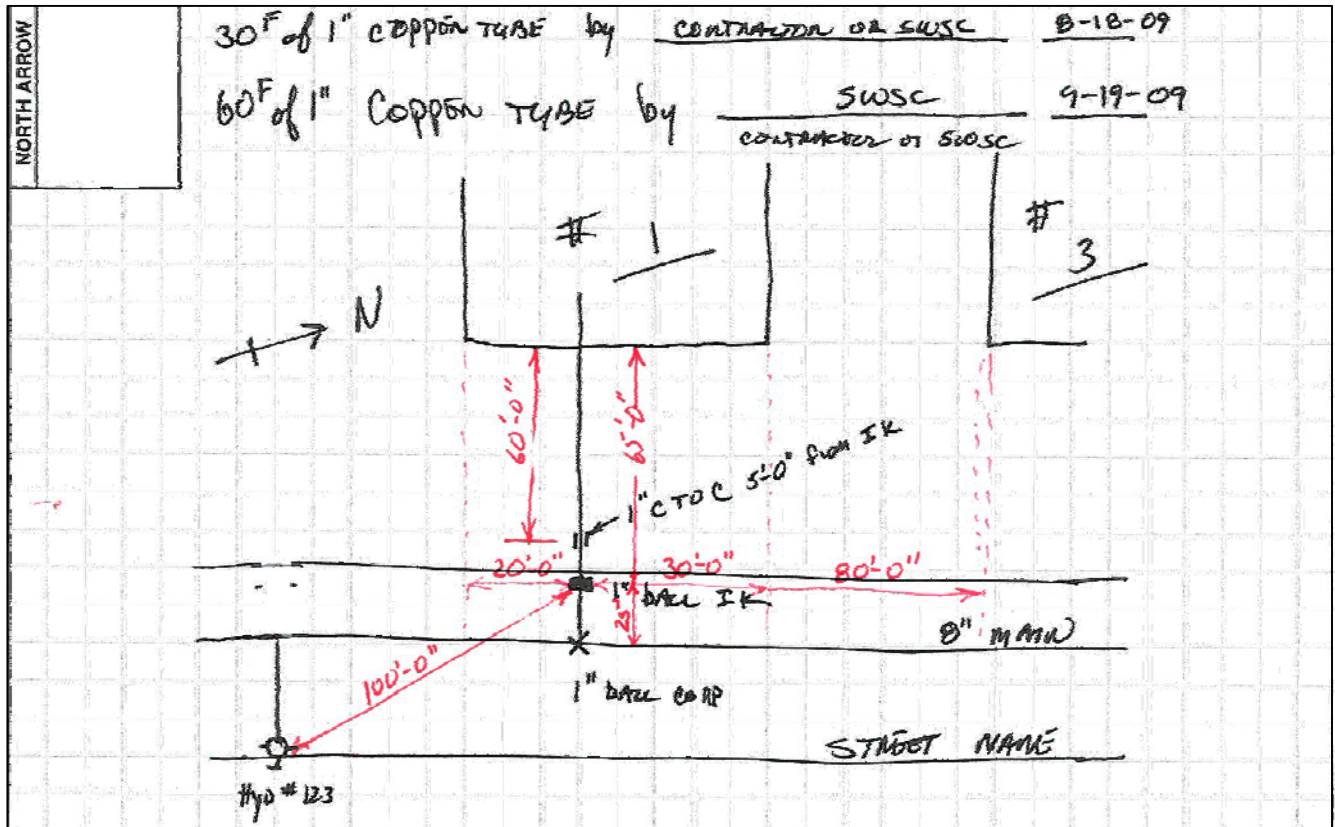 NORTH ARROW
30' of 1" COPPER TUBE by CONTRACTOR OR SWSC 8-18-09
60' of 1" COPPER TUBE by SWSC 9-19-09
CONTRACTOR or SWSC
# 1
# 3
N
60'-0"
65'-0"
1" C TO C 5'-0" from IK
20'-0"
30'-0"
80'-0"
1" BALL IK
25'
8" MAIN
100'-0"
1" BALL CORP
STREET NAME
HYD # 123